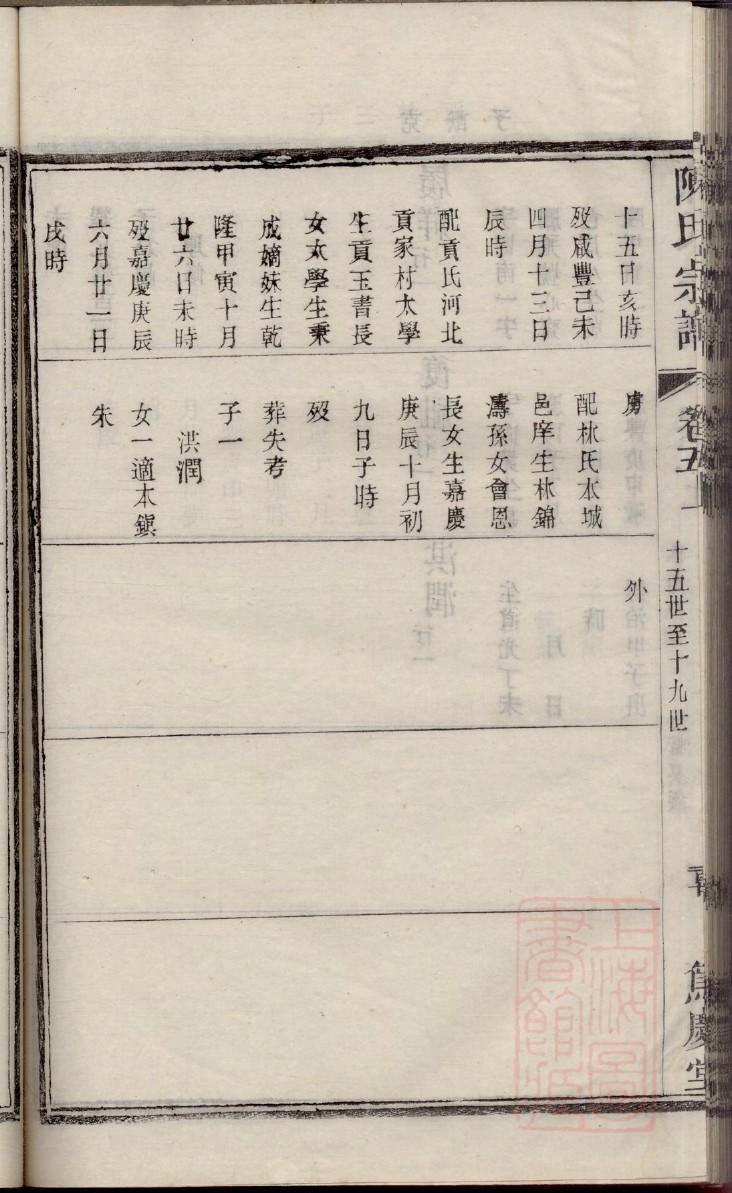 陳氏宗譜
卷五上
十五世至十九世
慶堂
十五日亥時
歿咸豐己未
四月十三日
辰時
配貢氏河北
貢家村太學
生貢玉書長
女太學生秉
成嫡妹生乾
隆甲寅十月
廿六日未時
歿嘉慶庚辰
六月廿一日
戌時
虜
配林氏本城
邑庠生林錦
濤孫女會恩
長女生嘉慶
庚辰十月初
九日子時
歿
葬失考
子一
洪潤
女一適本鎭
朱
外
上海圖書館藏